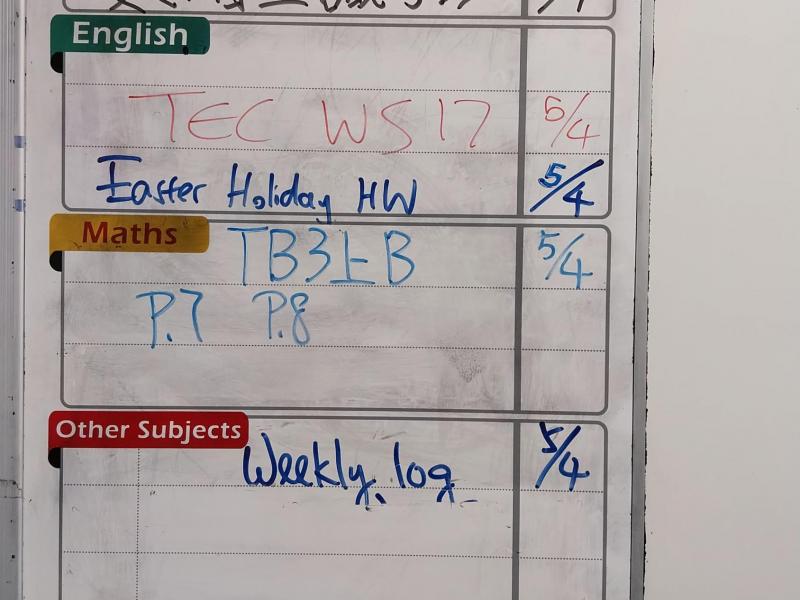 English
TEC WS 17 5/4
Easter Holiday HW 5/4
Maths TB3上B 5/4
P.7 P.8
Other Subjects
Weekly log 5/4